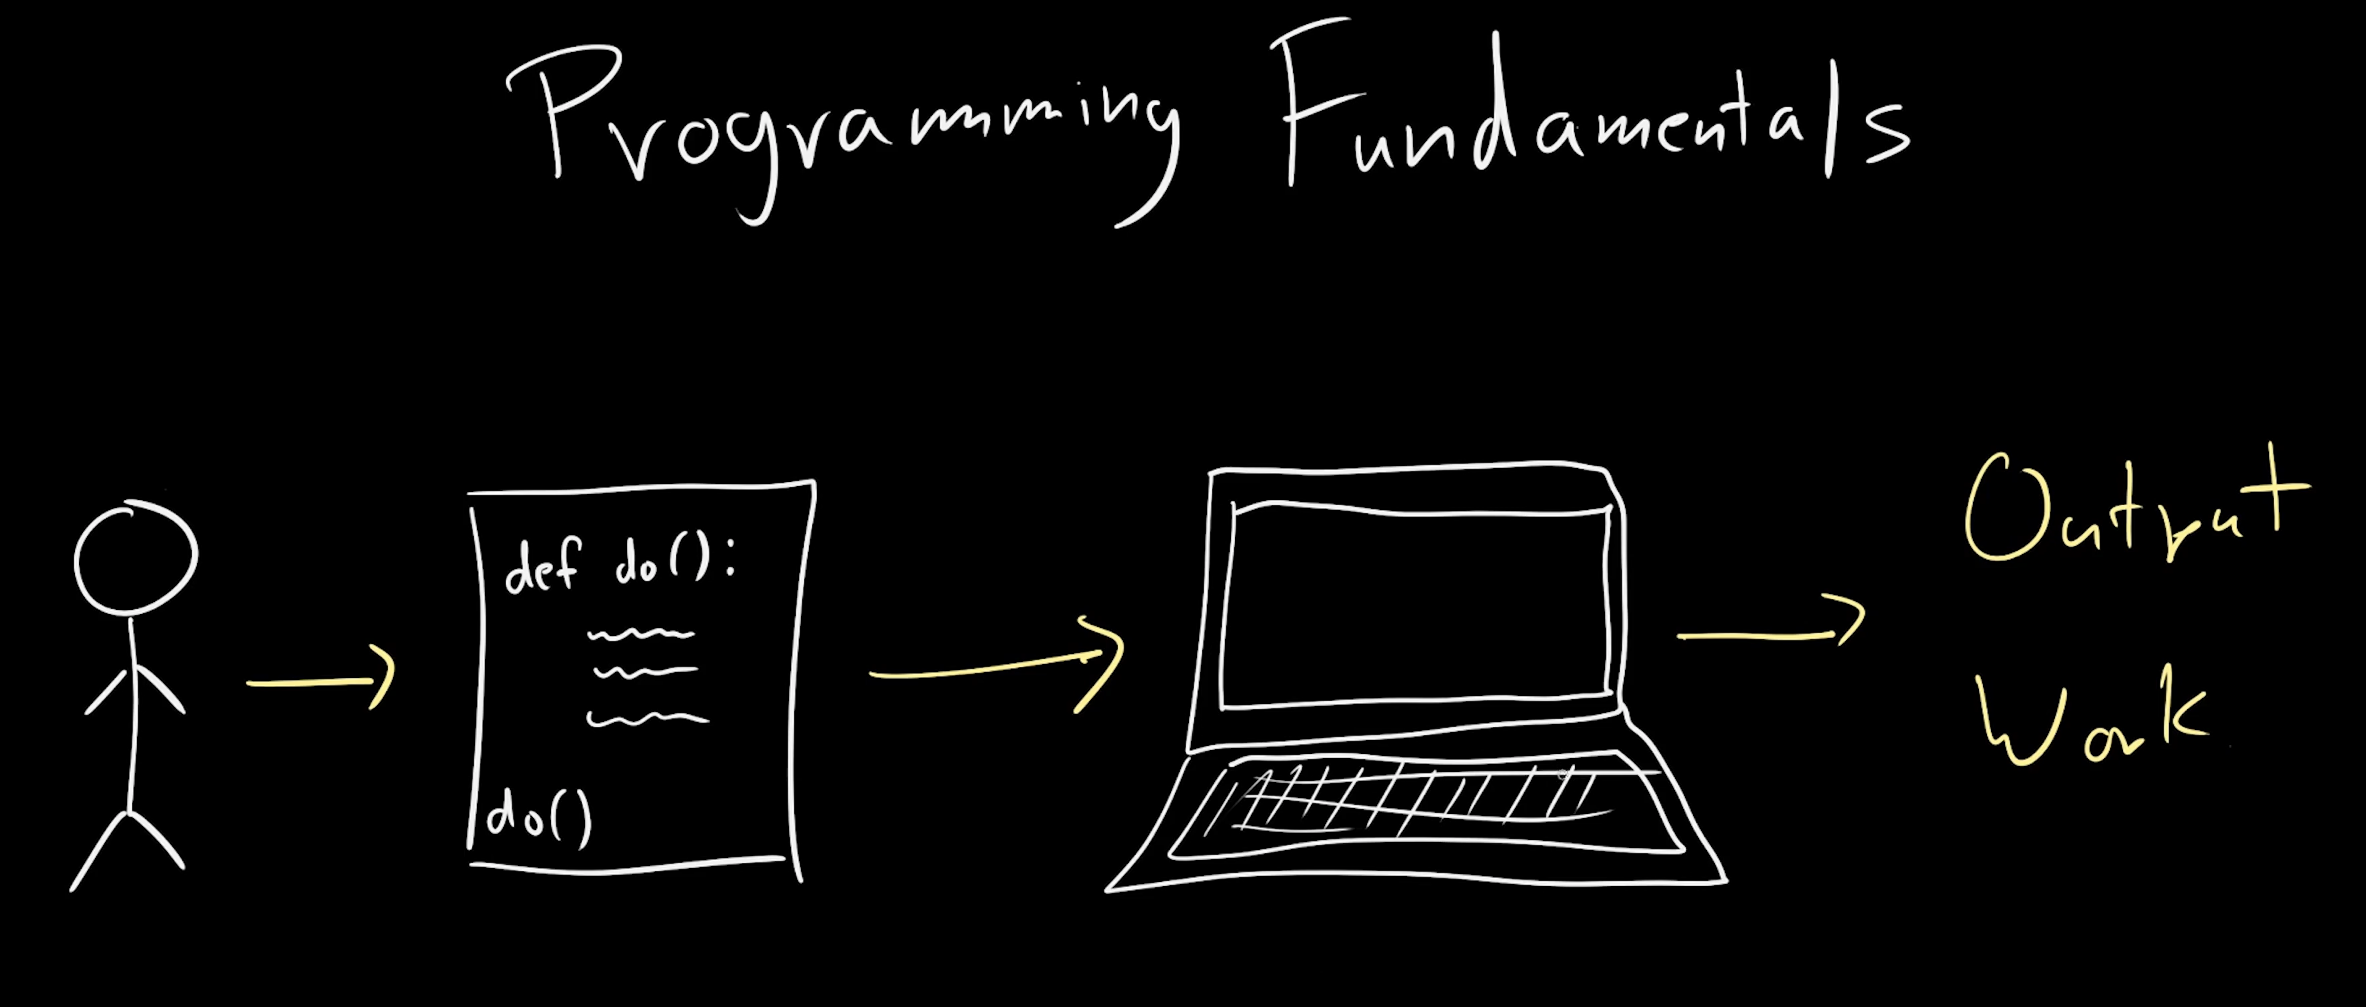 Programming Fundamentals
def do():
do()
Output
Work